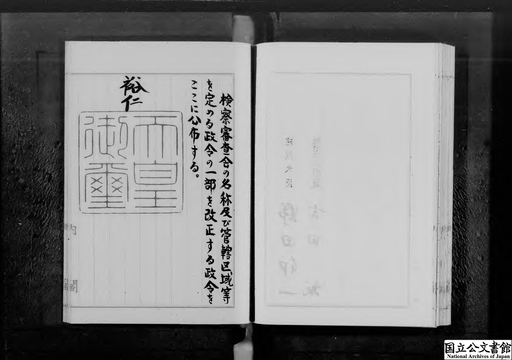 検察審査会の名称及び管轄区域等
を定める政令の一部を改正する政令を
ここに公布する。
裕仁
天皇
御璽
内閣
国立公文書館
National Archives of Japan